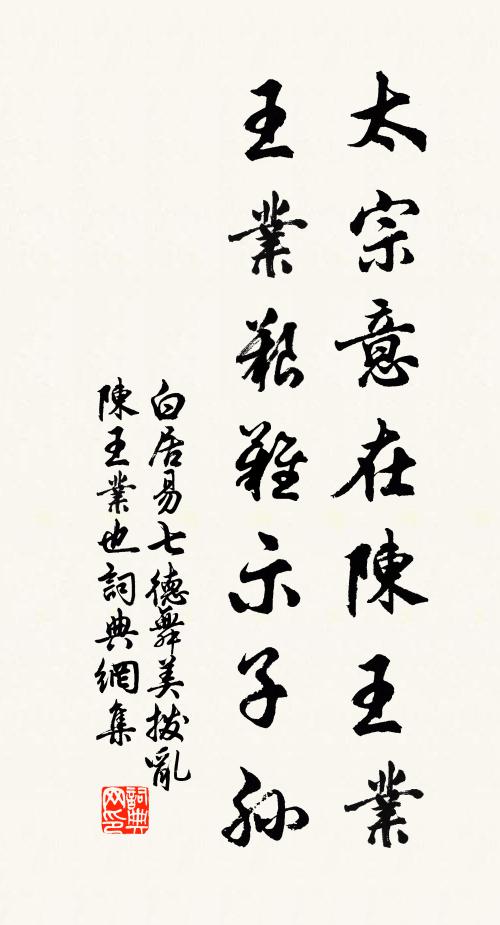 太宗意在陳王業
王業艱難示子孫
白居易七德舞美撥亂
陳王業也詞典網集
詞典
网印